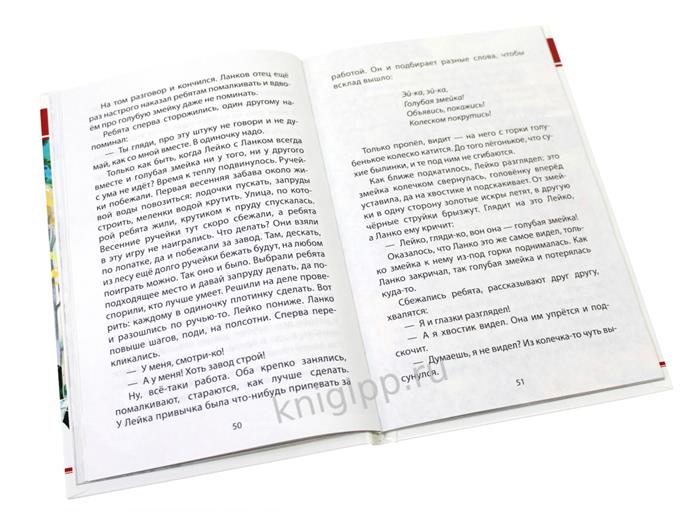 На том разговор и кончился. Ланков отец ещё
раз настрого наказал ребятам помалкивать и вдво-
ём про голубую змейку даже не поминать.
Ребята сперва сторожились, один другому на-
поминал:
— Ты гляди, про эту штуку не говори и не ду-
май, как со мной вместе. В одиночку надо.
Только как быть, когда Лейко с Ланком всегда
вместе и голубая змейка ни у того, ни у другого
с ума не идёт? Время к теплу подвинулось. Ручей-
ки побежали. Первая весенняя забава около жи-
вой воды повозиться: лодочки пускать, запруды
строить, меленки водой крутить. Улица, по кото-
рой ребята жили, крутиком к пруду спускалась.
Весенние ручейки тут скоро сбежали, а ребята
в эту игру не наигрались. Что делать? Они взяли
по лопатке, да и побежали за завод. Там, дескать,
из лесу ещё долго ручейки бежать будут, на любом
поиграть можно. Так оно и было. Выбрали ребята
подходящее место и давай запруду делать, да по-
спорили, кто лучше умеет. Решили на деле прове-
рить: каждому в одиночку плотинку сделать. Вот
и разошлись по ручью-то. Лейко пониже. Ланко
повыше шагов, поди, на полсотни. Сперва пере-
кликались.
— У меня, смотри-ко!
— А у меня! Хоть завод строй!
Ну, всё-таки работа. Оба крепко занялись,
помалкивают, стараются, как лучше сделать.
У Лейка привычка была что-нибудь припевать за
50
работой. Он и подбирает разные слова, чтобы
всклад вышло:
Эй-ка, эй-ка,
Голубая змейка!
Объявись, покажись!
Колеском покрутись!
Только пропел, видит — на него с горки голу-
бенькое колеско катится. До того лёгонькое, что су-
хие былинки, и те под ним не сгибаются.
Как ближе подкатилось, Лейко разглядел: это
змейка колечком свернулась, головёнку вперёд
уставила, да на хвостике и подскакивает. От змей-
ки в одну сторону золотые искры летят, в другую
чёрные струйки брызжут. Глядит на это Лейко,
а Ланко ему кричит:
— Лейко, гляди-ко, вон она — голубая змейка!
Оказалось, что Ланко это же самое видел, толь-
ко змейка к нему из-под горки поднималась. Как
Ланко закричал, так голубая змейка и потерялась
куда-то.
Сбежались ребята, рассказывают друг другу,
хвалятся:
— Я и глазки разглядел!
— А я хвостик видел. Она им упрётся и под-
скочит.
— Думаешь, я не видел? Из колечка-то чуть вы-
сунулся.
51
knigipp.ru